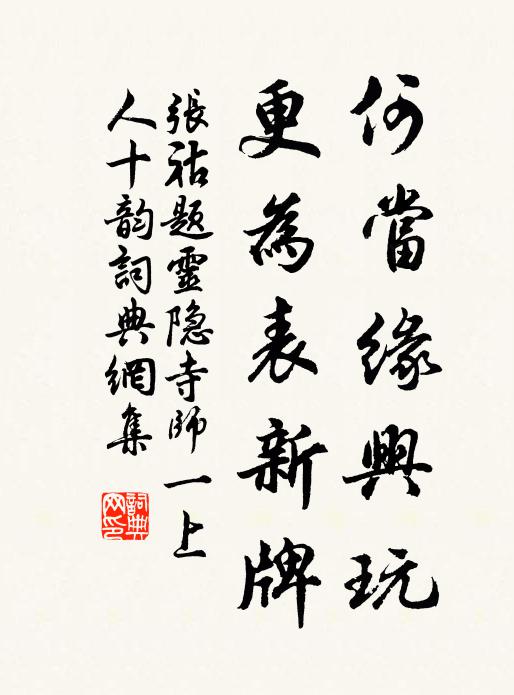 何當緣興玩
更為表新牌
張祜题靈隐寺師一上
人十韵詞典網集
詞典
网印